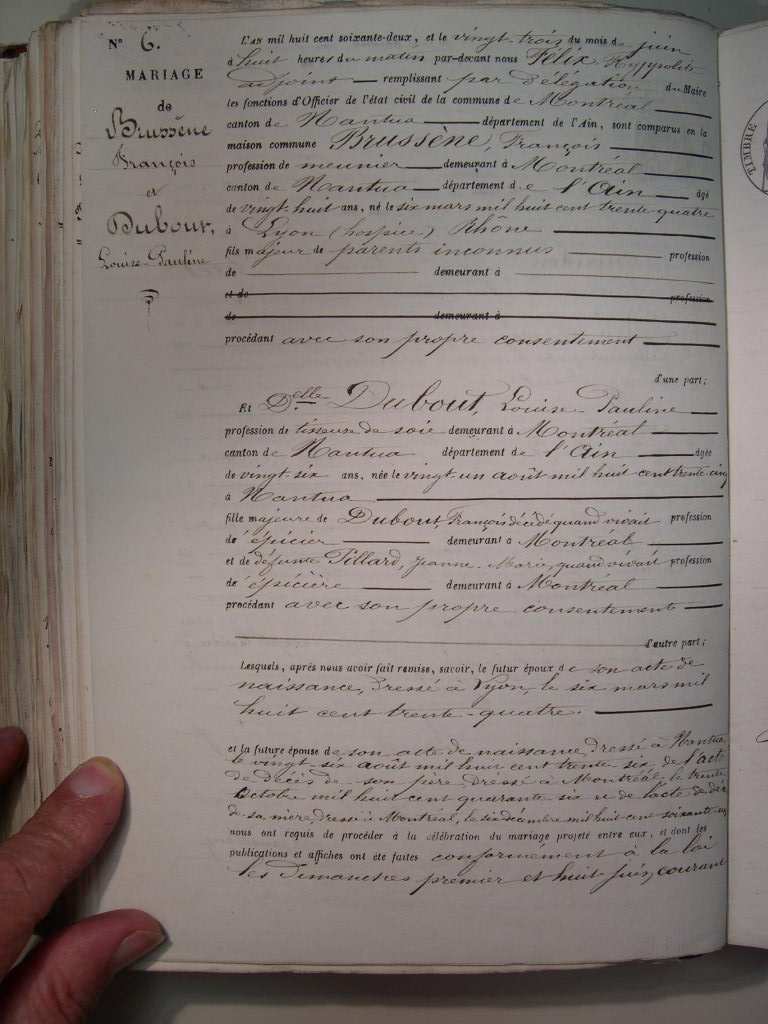 N° 6.
MARIAGE
de
Brussène
François
et
Dubout,
Louise-Pauline
L'AN mil huit cent soixante-deux, et le vingt-trois du mois de juin
à huit heures du matin par-devant nous Félix, Hyppolite
adjoint remplissant par délégation du Maire
les fonctions d'Officier de l'état civil de la commune de Montréal
canton de Nantua département de l'Ain, sont comparus en la
maison commune Brussène, François
profession de meunier demeurant à Montréal
canton de Nantua département de l'Ain âgé
de vingt-huit ans, né le six mars mil huit cent trente-quatre
à Lyon (hospice) Rhône
fils majeur de parents inconnus profession
de demeurant à
et de profession
de demeurant à
procédant avec son propre consentement
d'une part;
Et Delle Dubout, Louise-Pauline
profession de tisseuse de soie demeurant à Montréal
canton de Nantua département de l'Ain âgée
de vingt-six ans, née le vingt-un août mil huit cent trente-cinq
à Nantua
fille majeure de Dubout, François décédé quand vivait profession
de épicier demeurant à Montréal
et de défunte Pillard, Jeanne-Marie, quand vivait profession
de épicière demeurant à Montréal
procédant avec son propre consentement
d'autre part;
Lesquels, après nous avoir fait remise, savoir, le futur époux de son acte de
naissance, dressé à Lyon, le six mars mil
huit cent trente-quatre.
et la future épouse de son acte de naissance, dressé à Nantua
le vingt-six août mil huit cent trente six, de l'acte
de décès de son père, dressé à Montréal, le trente
Octobre mil huit cent quarante six et de l'acte de déc
de sa mère, dressé à Montréal, le six décembre mil huit cent soixante-un
nous ont requis de procéder à la célébration du mariage projeté entre eux, et dont les
publications et affiches ont été faites conformément à la loi
les Dimanches premier et huit juin, courant
TIMBRE